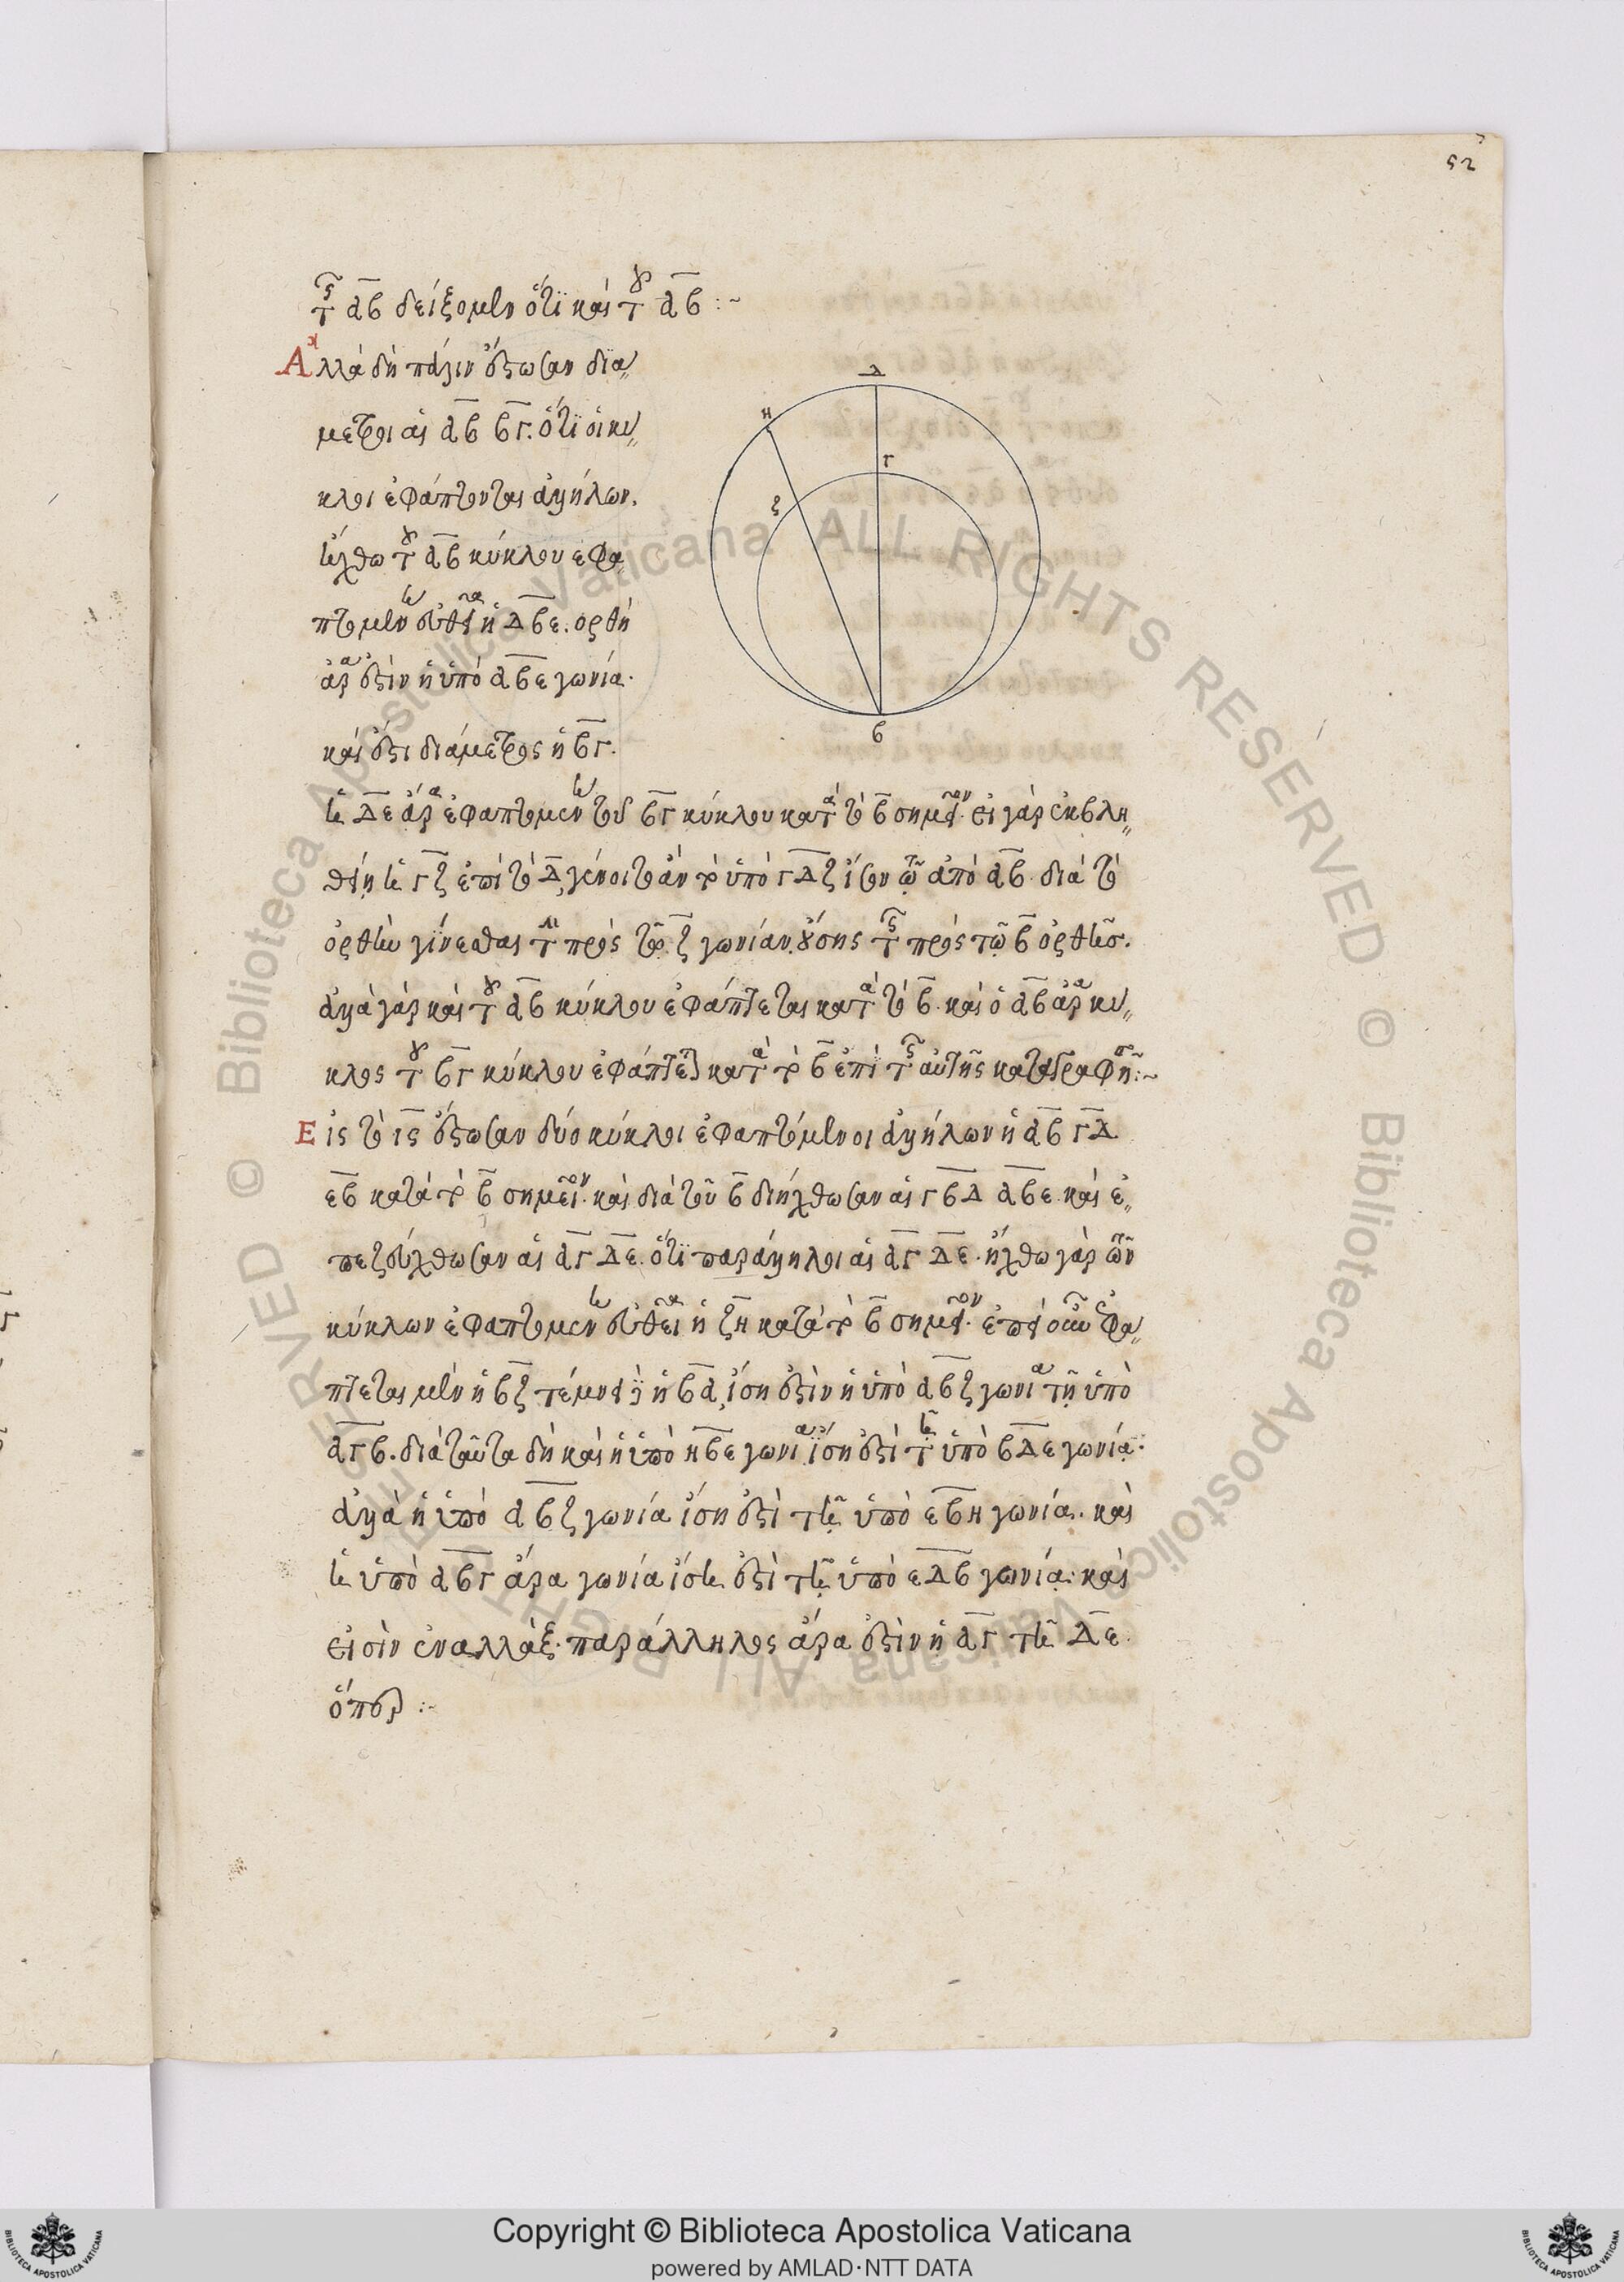 52
τῆς αβ δείξομεν ὅτι καὶ τοῦ αβ :~
Ἀλλὰ δὴ πάλιν ἔστωσαν διά
μετροι αἱ αβ βγ. ὅτι οἱ κύ
κλοι ἐφάπτονται ἀλλήλων.
ἤχθω τοῦ αβ κύκλου ἐφα
πτομένη εὐθεῖα ἡ Δβε. ορθὴ
ἄρα ἐστὶν ἡ ὑπὸ αβε γωνία.
καὶ ἔστι διάμετρος ἡ βγ.
ἡ Δε ἄρα ἐφαπτομένη τοῦ βγ κύκλου κατὰ τὸ β σημεῖον. εἰ γὰρ ἐκβλη
θείη ἡ γζ ἐπὶ τὸ Δ, γένοιτο ἂν τὸ ὑπὸ γΔζ ἴσον τῷ ἀπὸ αβ. διὰ τὸ
ὀρθὴν γίνεσθαι τὴν πρὸς τῷ ζ γωνίαν οὔσης τῆς πρὸς τῷ β ὀρθῆς.
ἀλλὰ γὰρ καὶ τοῦ αβ κύκλου ἐφάπτεται κατὰ τὸ β. καὶ ὁ αβ ἄρα κύ
κλος τοῦ βγ κύκλου ἐφάπτεται κατὰ τὸ β ἐπὶ τῆς αὐτῆς καταγραφῆς :~
Εἰς τὸ ις ἔστωσαν δύο κύκλοι ἐφαπτόμενοι ἀλλήλων ἡ αβ γΔ
εβ κατὰ τὸ β σημεῖον. καὶ διὰ τοῦ β διήχθωσαν αἱ γβΔ αβε. καὶ ἐ
πεζεύχθωσαν αἱ αγ Δε. ὅτι παράλληλοι αἱ αγ Δε. ἤχθω γὰρ τῶν
κύκλων ἐφαπτομένη εὐθεῖα ἡ ζη κατὰ τὸ β σημεῖον. ἐπεὶ οὖν ἐφά
πτεται μὲν ἡ βζ τέμνει δὲ ἡ βα, ἴση ἐστὶν ἡ ὑπὸ αβζ γωνία τῇ ὑπὸ
αγβ. διὰ ταῦτα δὴ καὶ ἡ ὑπὸ ηβε γωνία ἴση ἐστὶ τῇ ὑπὸ βΔε γωνίᾳ.
ἀλλὰ ἡ ὑπὸ αβζ γωνία ἴση ἐστὶ τῇ ὑπὸ εβη γωνίᾳ. καὶ
ἡ ὑπὸ αβγ ἄρα γωνία ἴση ἐστὶ τῇ ὑπὸ εΔβ γωνίᾳ. καὶ
εἰσὶν ἐναλλάξ. παράλληλος ἄρα ἐστὶν ἡ αγ τῇ Δε.
ὅπερ :~
Δ
η
γ
ζ
β
© Biblioteca Apostolica Vaticana ALL RIGHTS RESERVED
© Biblioteca Apostolica Vaticana ALL RIGHTS RESERVED
Copyright © Biblioteca Apostolica Vaticana
powered by AMLAD·NTT DATA
BIBLIOTECA APOSTOLICA VATICANA
BIBLIOTECA APOSTOLICA VATICANA